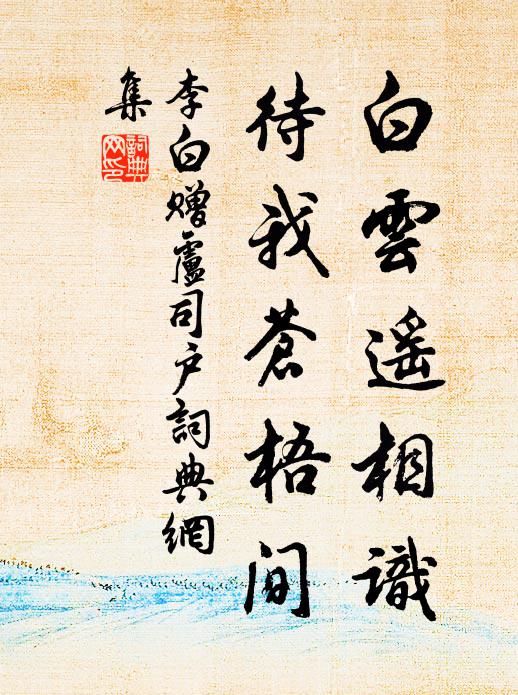 白雲遥相識
待我蒼梧間
李白贈盧司户詞典網
集
詞典
网印